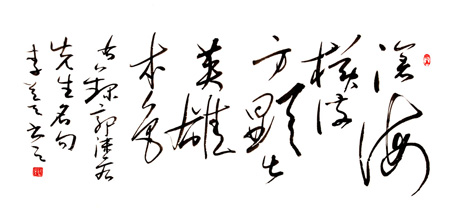 沧海
横流
方显出
英雄
本色
录郭沫若
先生名句
李